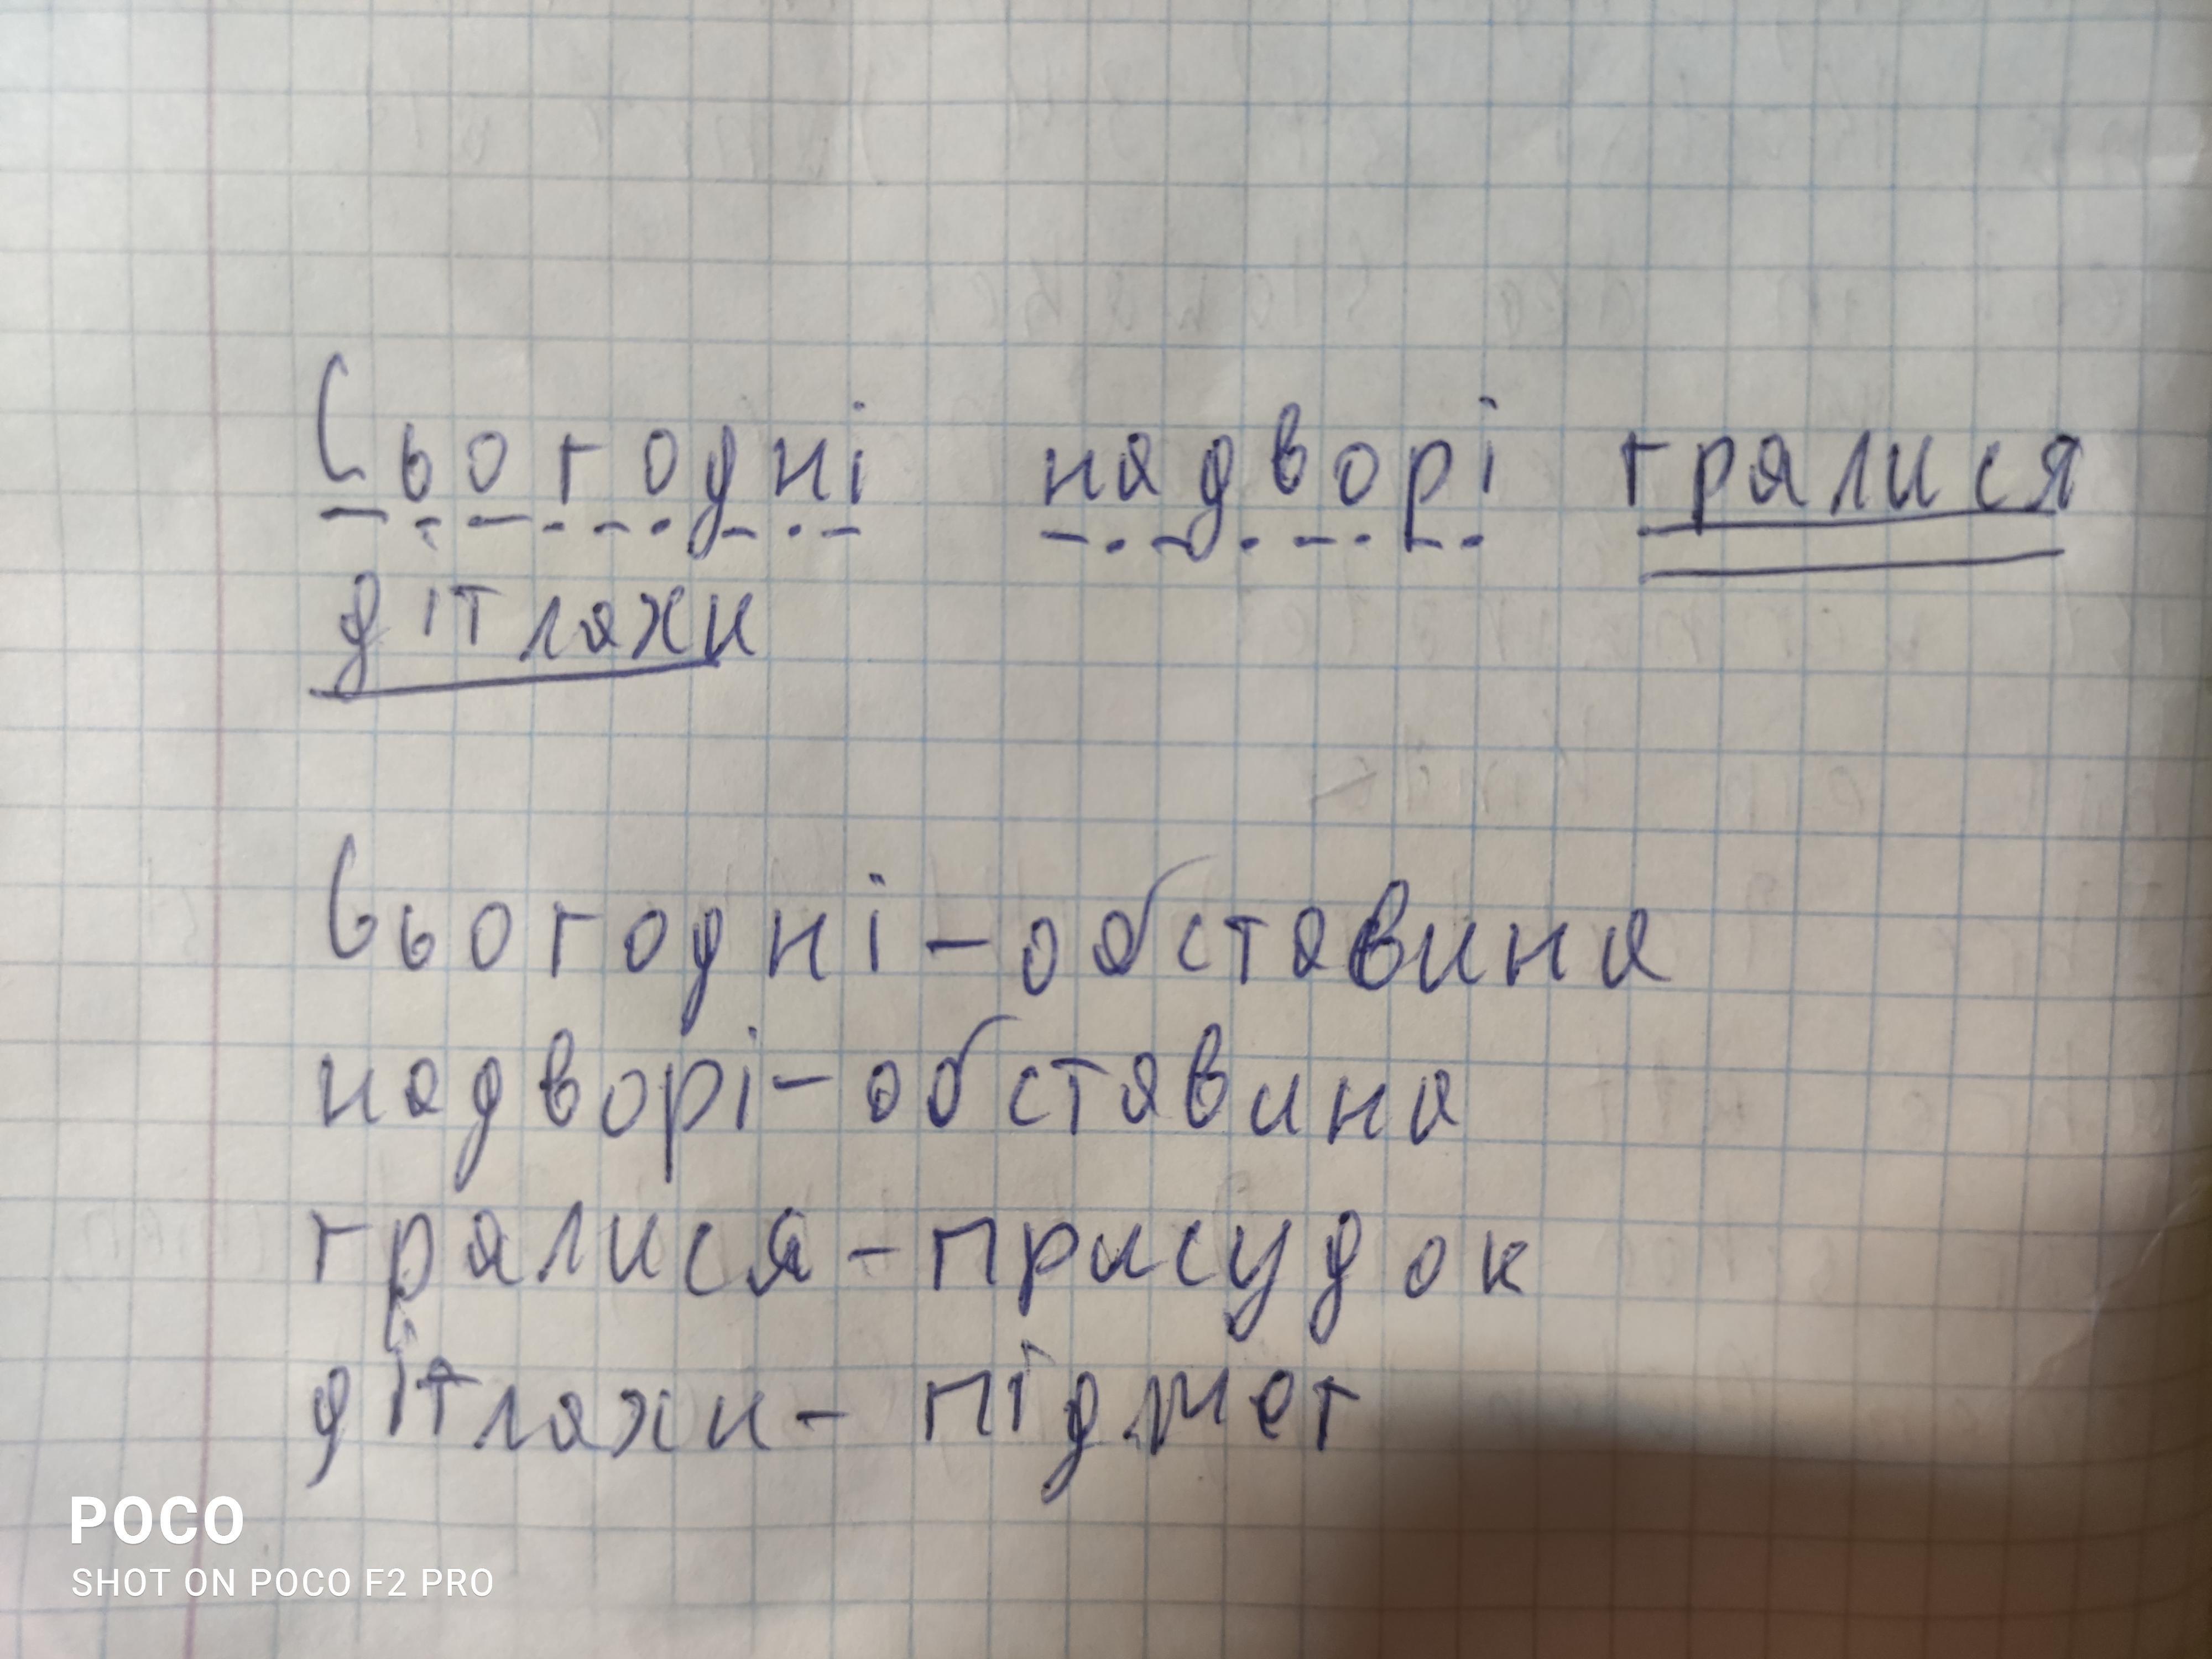 Сьогодні надворі гралися
дітлахи
Сьогодні - обставина
надворі - обставина
гралися - присудок
дітлахи - підмет
POCO
SHOT ON POCO F2 PRO